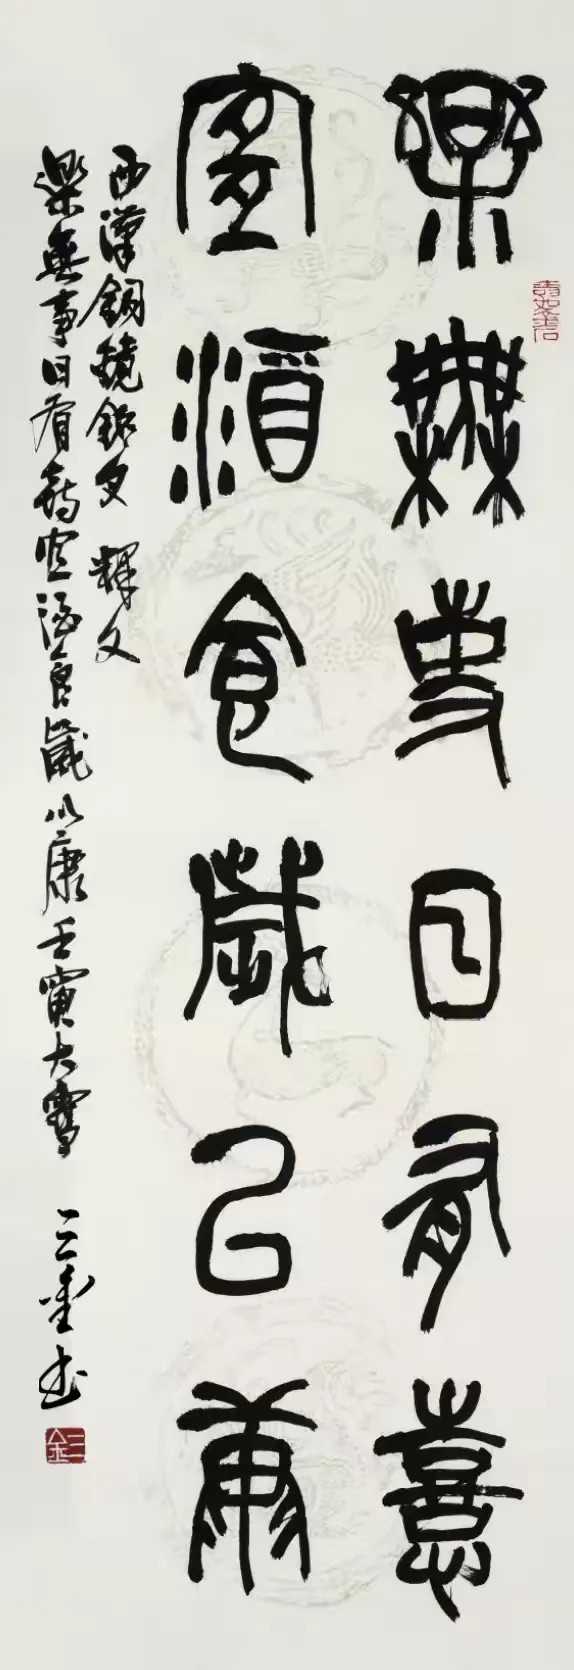 樂無事日有憙
宜酒食歲以康
西漢銅鏡銘文 釋文
樂無事日有憙宜酒食歲以康壬寅大雪 三金書
三金